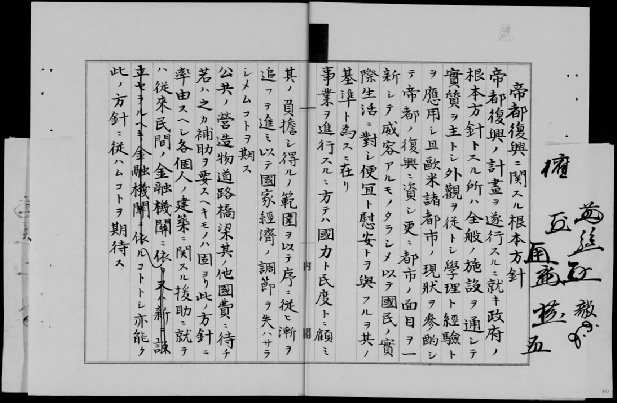 帝都復興ニ関スル根本方針
帝都復興ノ計畫ヲ遂行スルニ就キ政府ノ
根本方針トスル所ハ全般ノ施設ヲ通シテ
實質ヲ主トシ外觀ヲ從トシ學理ト經驗ト
ヲ應用シ且歐米諸都市ノ現狀ヲ參酌シ
テ帝都ノ復興ニ資シ更ニ都市ノ面目ヲ一
新シテ威容アルモノタラシメ以テ國民ノ實
際生活ニ對シ便宜ト慰安トヲ與フルヲ其ノ
基準ト為スニ在リ
事業ヲ進行スルニ方テハ國力ト民度トニ顧ミ
其ノ負擔シ得ルノ範圍ヲ以テ序ニ從ヒ漸ヲ
追フヲ進ミ以テ國家經濟ノ調節ヲ失ハサラ
シメムコトヲ期ス
公共ノ營造物道路橋梁其ノ他國費ニ待チ
若ハ之カ補助ヲ要スヘキモノハ固ヨリ此ノ方針ニ
率由スヘシ各個人ノ建築ニ関スル援助ニ就テ
ハ從來民間ノ金融機關ニ依リ又ハ新ニ設
立セラルヘキ金融機關ニ依ルコトトシ亦能ク
此ノ方針ニ從ハムコトヲ期待ス
内閣